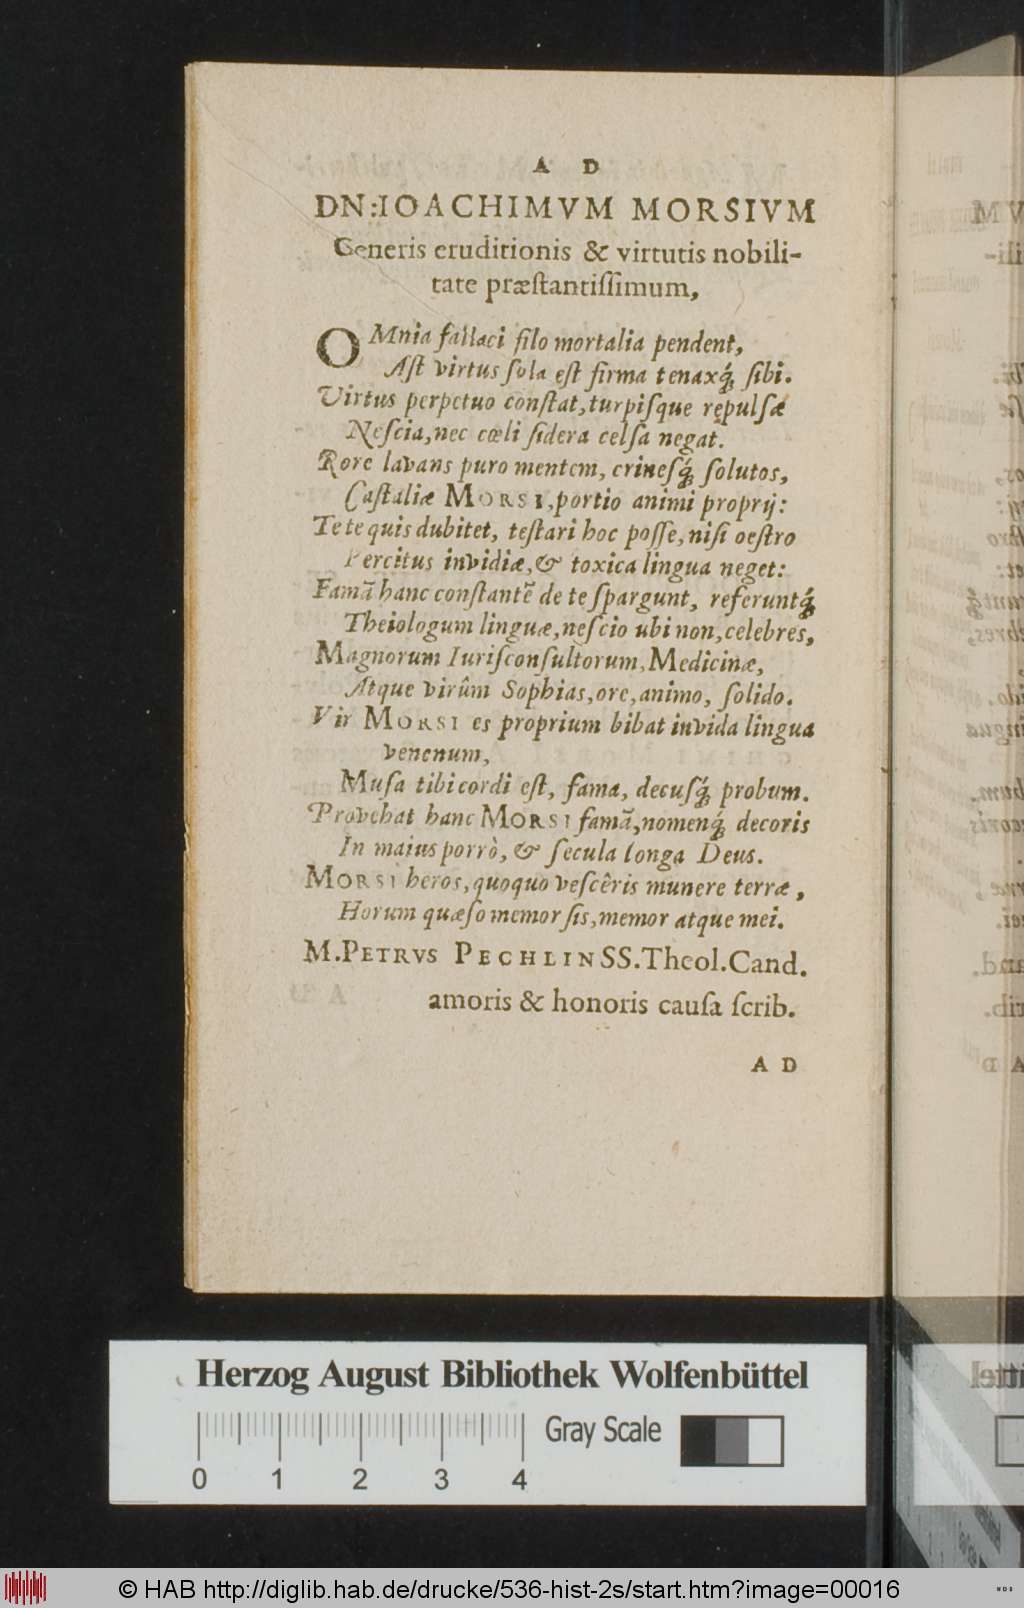 A D
DN: IOACHIMVM MORSIVM
Generis eruditionis & virtutis nobili-
tate præstantissimum,
OMnia fallaci filo mortalia pendent,
Ast virtus sola est firma tenaxq́; sibi.
Virtus perpetuo constat, turpisque repulsæ
Nescia, nec cœli sidera celsa negat.
Rore lavans puro mentem, crinesq́; solutos,
Castaliæ MORSI, portio animi proprij:
Te te quis dubitet, testari hoc posse, nisi oestro
Percitus invidiæ, & toxica lingua neget:
Famã hanc constantẽ de te spargunt, referuntq́;
Theiologum linguæ, nescio ubi non, celebres,
Magnorum Iurisconsultorum, Medicinæ,
Atque virûm Sophias, ore, animo, solido.
Vir MORSI es proprium bibat invida lingua
venenum,
Musa tibi cordi est, fama, decusq́; probum.
Provehat hanc MORSI famã, nomenq́; decoris
In maius porrò, & secula longa Deus.
MORSI heros, quoquo vescêris munere terræ,
Horum quæso memor sis, memor atque mei.
M. PETRVS PECHLIN SS. Theol. Cand.
amoris & honoris causa scrib.
A D
Herzog August Bibliothek Wolfenbüttel
Gray Scale
0 1 2 3 4
© HAB http://diglib.hab.de/drucke/536-hist-2s/start.htm?image=00016